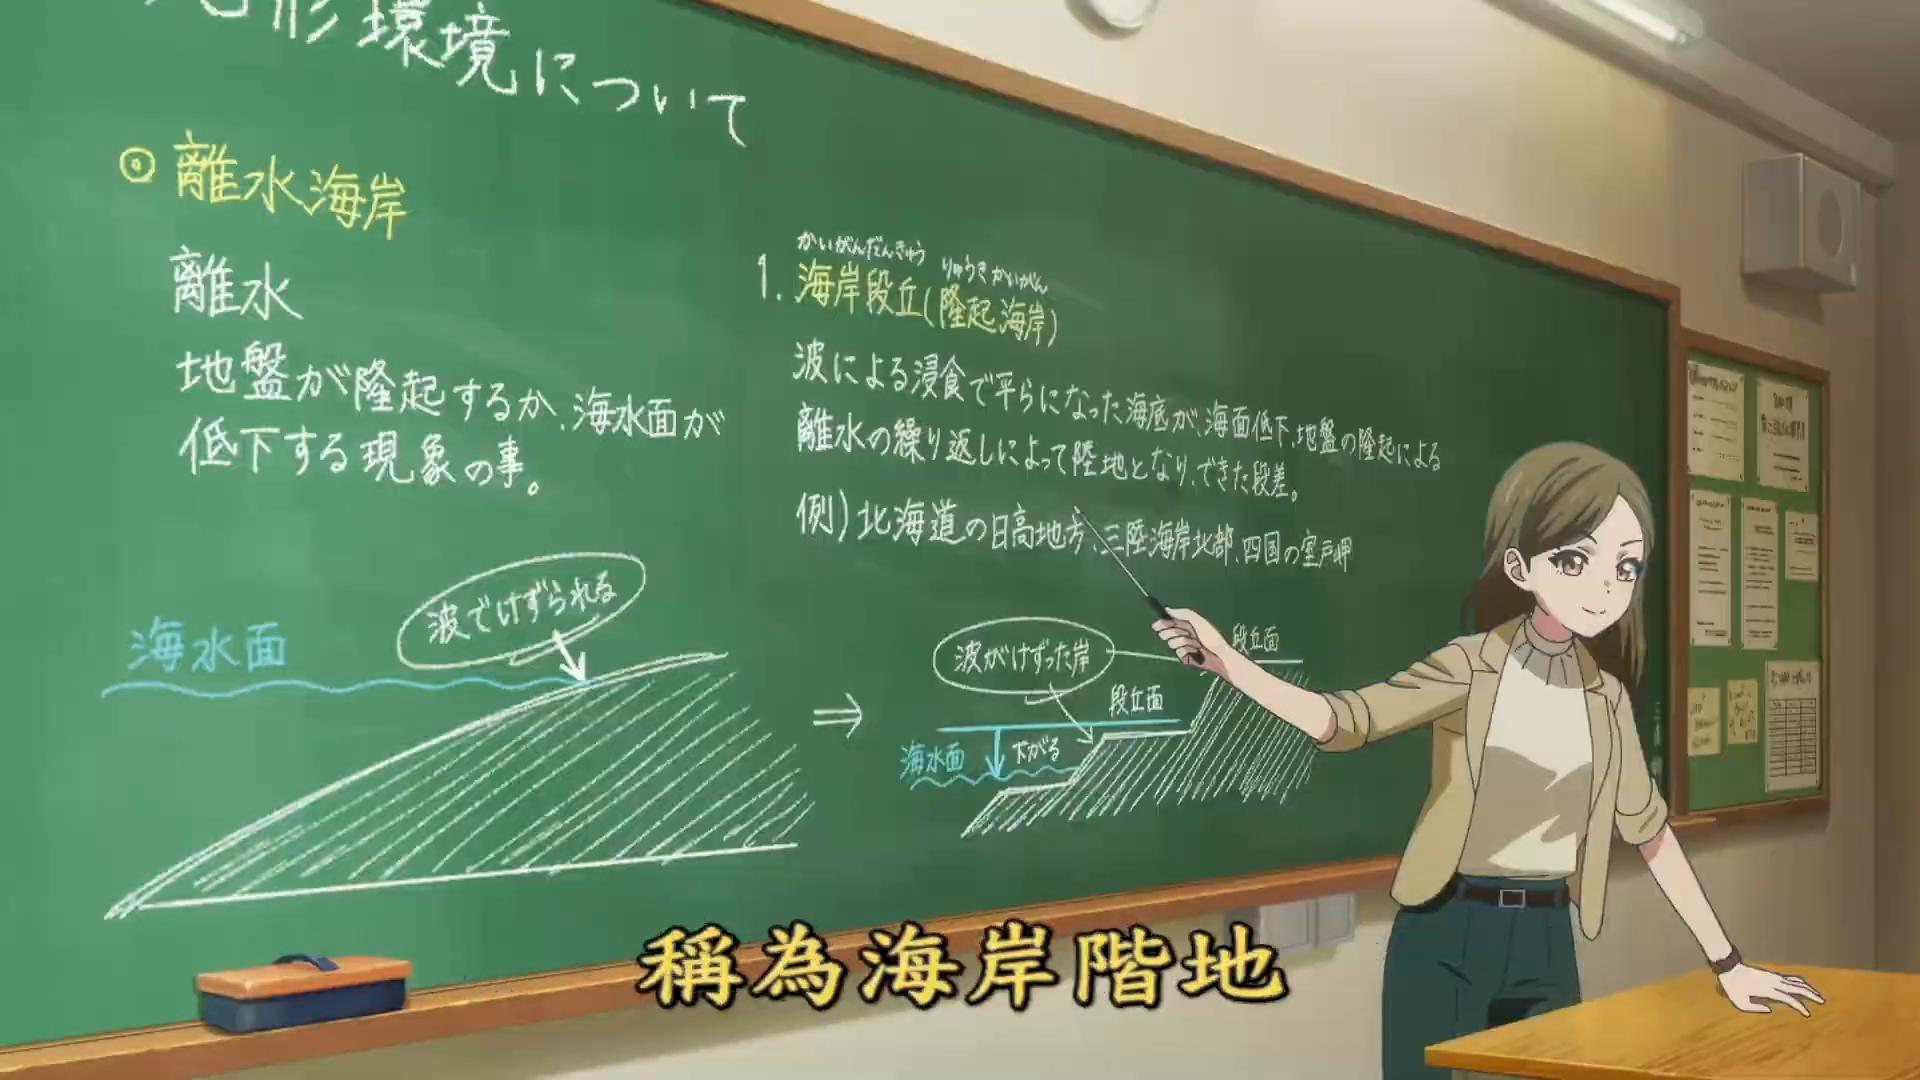 形環境について
離水海岸
離水
地盤が隆起するか、海水面が
低下する現象の事。
波でけずられる
海水面
かいがんだんきゅう りゅうきかいがん
1. 海岸段丘(隆起海岸)
波による浸食で平らになった海底が、海面低下、地盤の隆起による
離水の繰り返しによって陸地となり、できた段差。
例)北海道の日高地方、三陸海岸北部、四国の室戸岬
波がけずった岸
段丘面
段丘面
海水面
下がる
稱為海岸階地